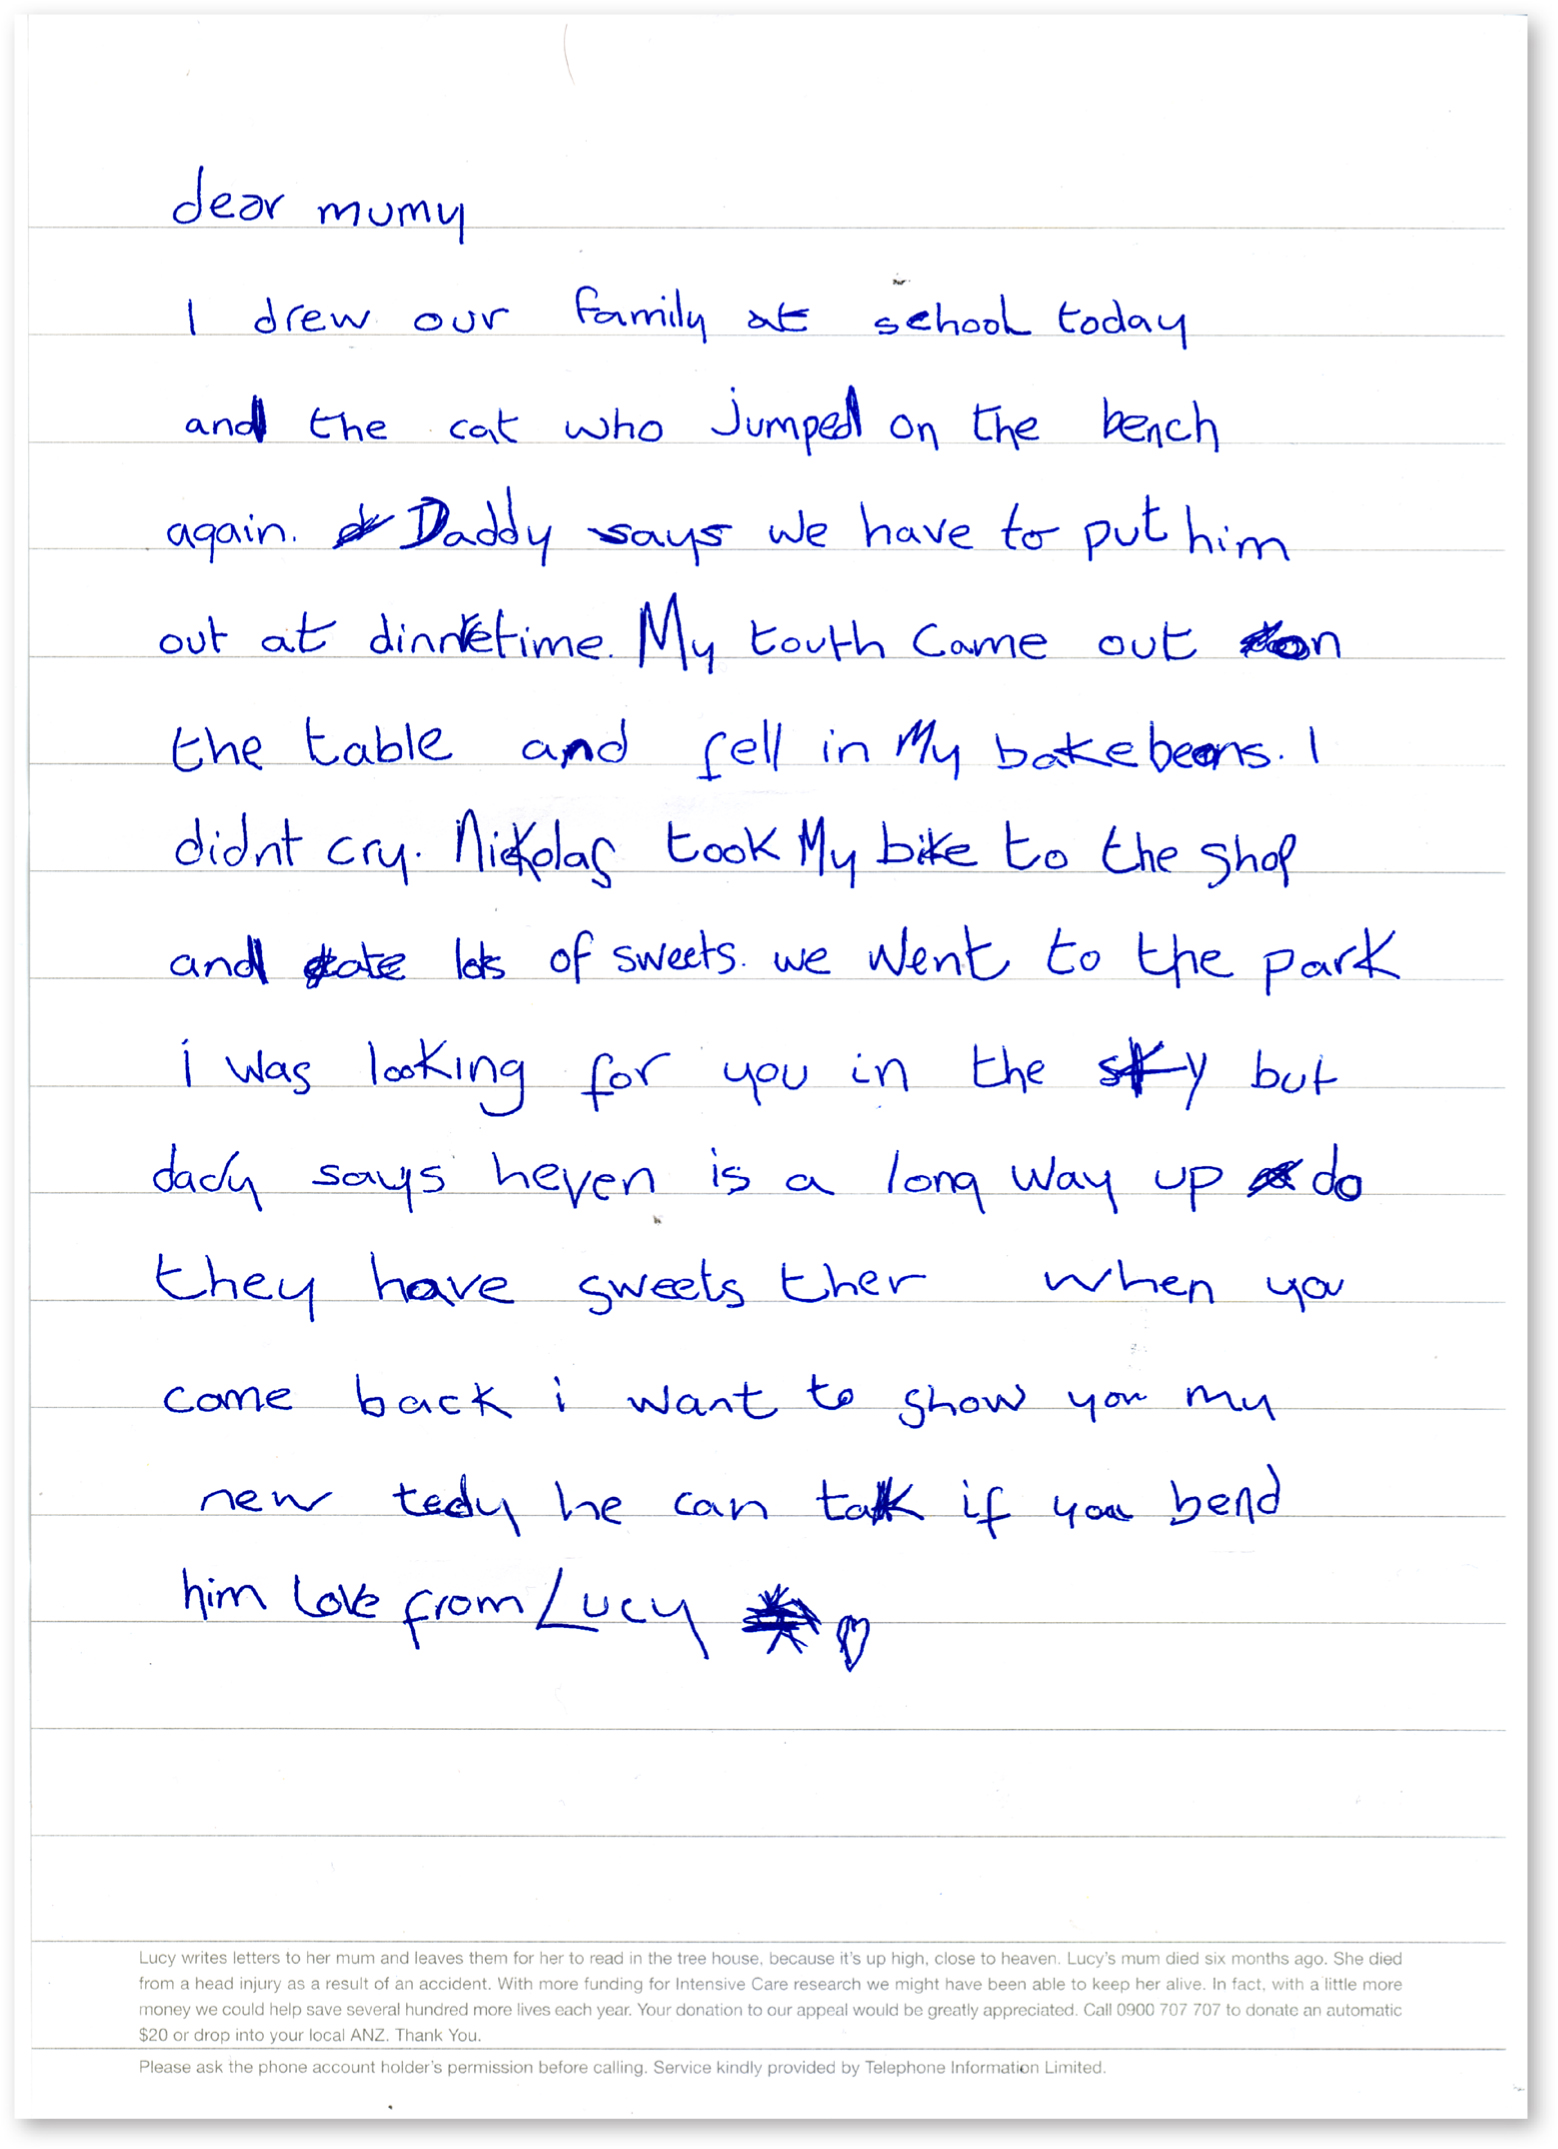 dear mumy
I drew our family at school today
and the cat who jumped on the bench
again. Daddy says we have to put him
out at dinnretime. My touth came out on
the table and fell in My bakebeans. I
didnt cry. Nickolas took My bike to the shop
and ate lots of sweets. we went to the park
i was looking for you in the sky but
dady says heven is a long way up do
they have sweets ther when you
come back i want to show you my
new tedy he can talk if you bend
him love from Lucy
Lucy writes letters to her mum and leaves them for her to read in the tree house, because it's up high, close to heaven. Lucy's mum died six months ago. She died
from a head injury as a result of an accident. With more funding for Intensive Care research we might have been able to keep her alive. In fact, with a little more
money we could help save several hundred more lives each year. Your donation to our appeal would be greatly appreciated. Call 0900 707 707 to donate an automatic
$20 or drop into your local ANZ. Thank You.
Please ask the phone account holder's permission before calling. Service kindly provided by Telephone Information Limited.